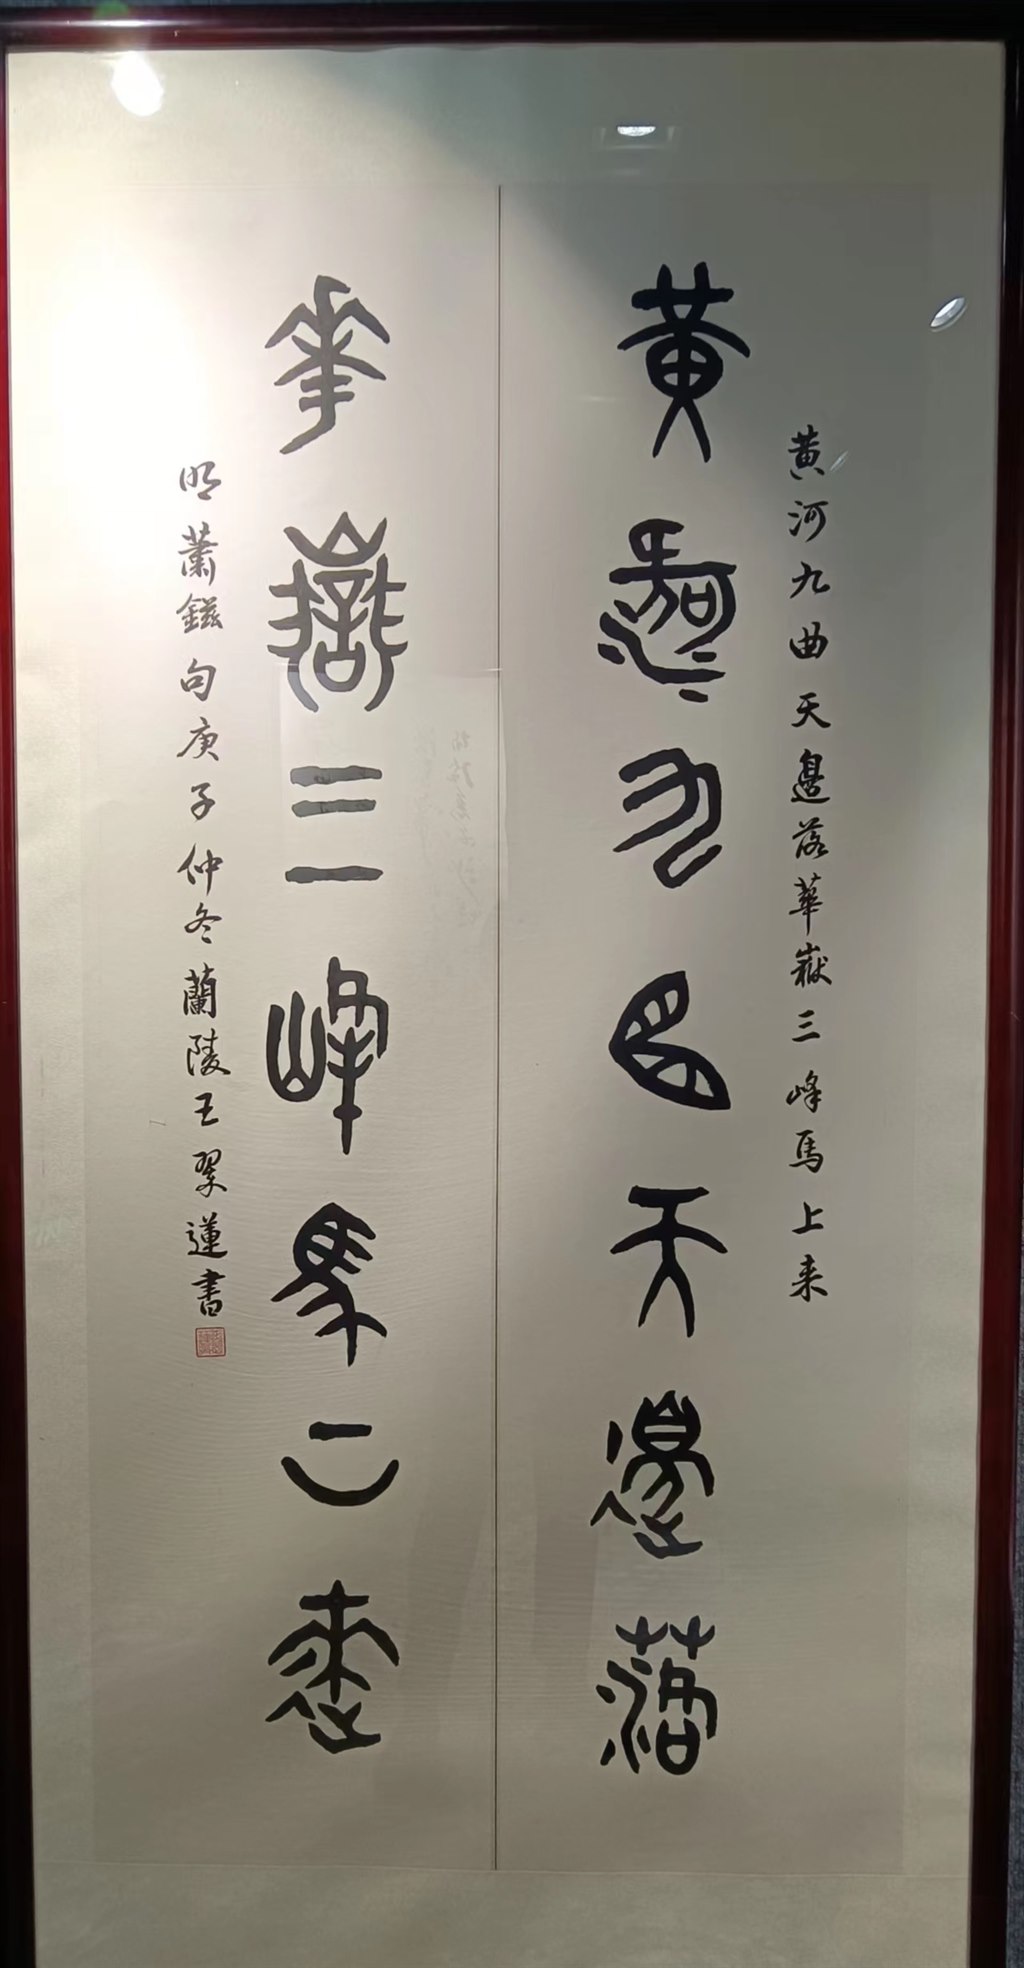 黄河九曲天邉落華嶽三峰馬上来
黄河九曲天邊落
華嶽三峰馬上来
明蕭鎡句庚子仲冬蘭陵王翠蓮書